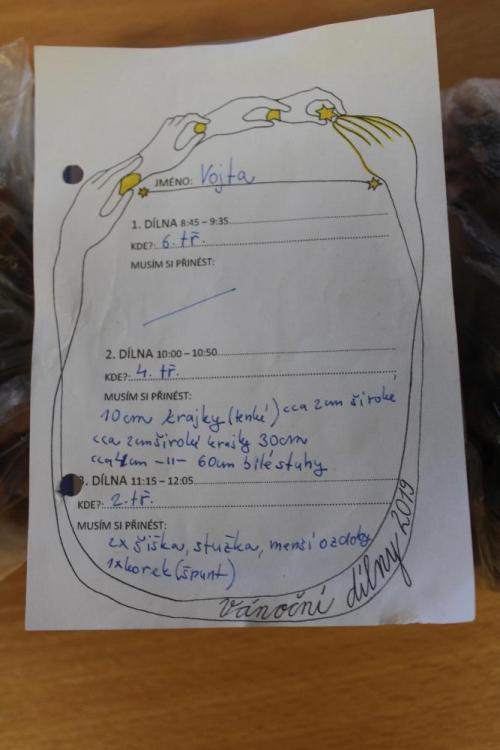 JMÉNO: Vojta
1. DÍLNA 8:45 – 9:35
KDE?: 6. tř.
MUSÍM SI PŘINÉST:
2. DÍLNA 10:00 – 10:50
KDE?: 4. tř.
MUSÍM SI PŘINÉST:
10cm krajky (tenké) cca 2cm široké
cca 2cm široké krajky 30cm
cca 4cm -||- 60cm bílé stuhy
3. DÍLNA 11:15 – 12:05
KDE?: 2. tř.
MUSÍM SI PŘINÉST:
2x šiška, stužka, menší ozdoby
1x korek (špunt)
vánoční dílny 2019